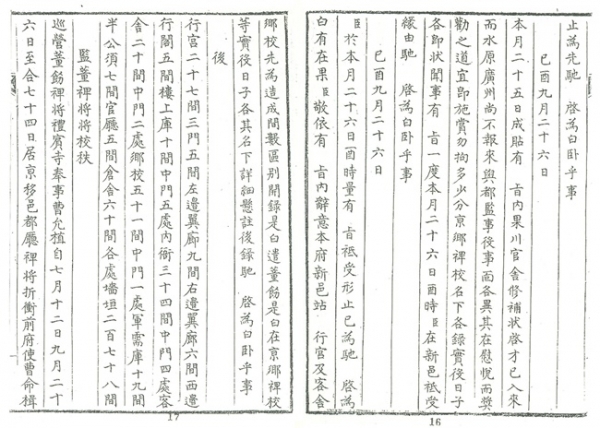 止為先馳 啓為白臥乎事
己酉九月二十六日
本月二十五日成貼有 旨內果川官舍修補狀 啓才已入來
而水原廣州尙不報來與都監事役事面各異其在慰悅而獎
勸之道宜卽施賞勿拘多少分京鄉裨校名下各錄實役日子
各卽狀聞事有 旨一度本月二十六日酉時臣在新邑祗受
緣由馳 啓為白臥乎事
己酉九月二十六日
臣於本月二十六日酉時量有 旨祗受形止已為馳 啓為
白有在果臣敬依有 旨內辭意本府新邑站 行宮及客舍
16
鄉校先為造成間數區別開錄是白遣董飭是白在京鄉裨校
等實役日子各其名下詳細懸註後錄馳 啓為白臥乎事
後
行宮二十七間三門五間左邊翼廊九間右邊翼廊六間西邊
行閣五間樓上庫十間中門五處內衙三十四間中門四處客
舍二十間中門二處鄉校五十一間中門一處軍需庫十九間
半公須七間官廳五間倉舍六十間各處墻垣二百七十八間
監董裨將將校秩
巡營董飭裨將禮賓寺奉事曹允植自七月十二日九月二十
六日至合七十四日居京移邑都廳裨將折衝前府使曹命楫
17